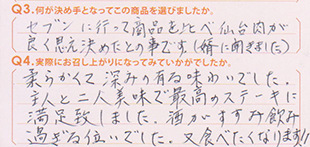 Q3.何が決め手となってこの商品を選びましたか。
セブンに行って商品を比べ仙台肉が
良く思え決めたとの事です(婿に聞きました)
Q4.実際にお召し上がりになってみていかがでしたか。
柔らかくて深みの有る味わいでした。
主人と二人美味で最高のステーキに
満足致しました。酒がすすみ飲み
過ぎる位いでした。又食べたくなります!!